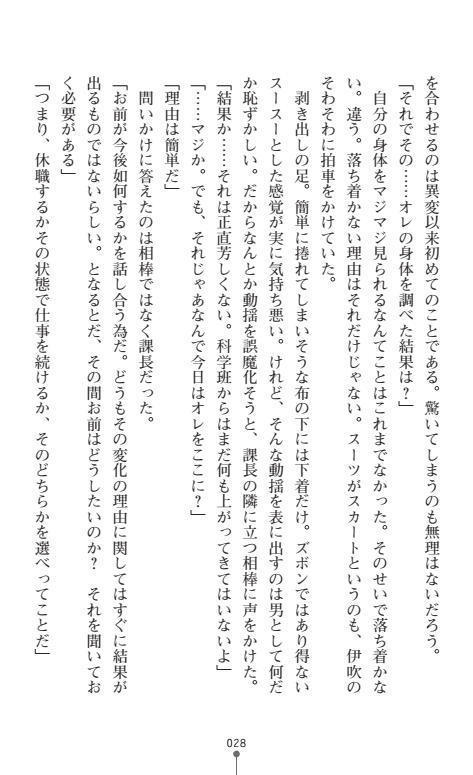 を合わせるのは異変以来初めてのことである。驚いてしまうのも無理はないだろう。
「それでその……オレの身体を調べた結果は？」
自分の身体をマジマジ見られるなんてことはこれまでなかった。そのせいで落ち着かな
い。違う。落ち着かない理由はそれだけじゃない。スーツがスカートというのも、伊吹の
そわそわに拍車をかけていた。
剥き出しの足。簡単に捲れてしまいそうな布の下には下着だけ。ズボンではあり得ない
スースーとした感覚が実に気持ち悪い。けれど、そんな動揺を表に出すのは男として何だ
か恥ずかしい。だからなんとか動揺を誤魔化そうと、課長の隣に立つ相棒に声をかけた。
「結果か……それは正直芳しくない。科学班からはまだ何も上がってきてはいないよ」
「……マジか。でも、それじゃあなんで今日はオレをここに？」
「理由は簡単だ」
問いかけに答えたのは相棒ではなく課長だった。
「お前が今後如何するかを話し合う為だ。どうもその変化の理由に関してはすぐに結果が
出るものではないらしい。となるとだ、その間お前はどうしたいのか？　それを聞いてお
く必要がある」
「つまり、休職するかその状態で仕事を続けるか、そのどちらかを選べってことだ」
028